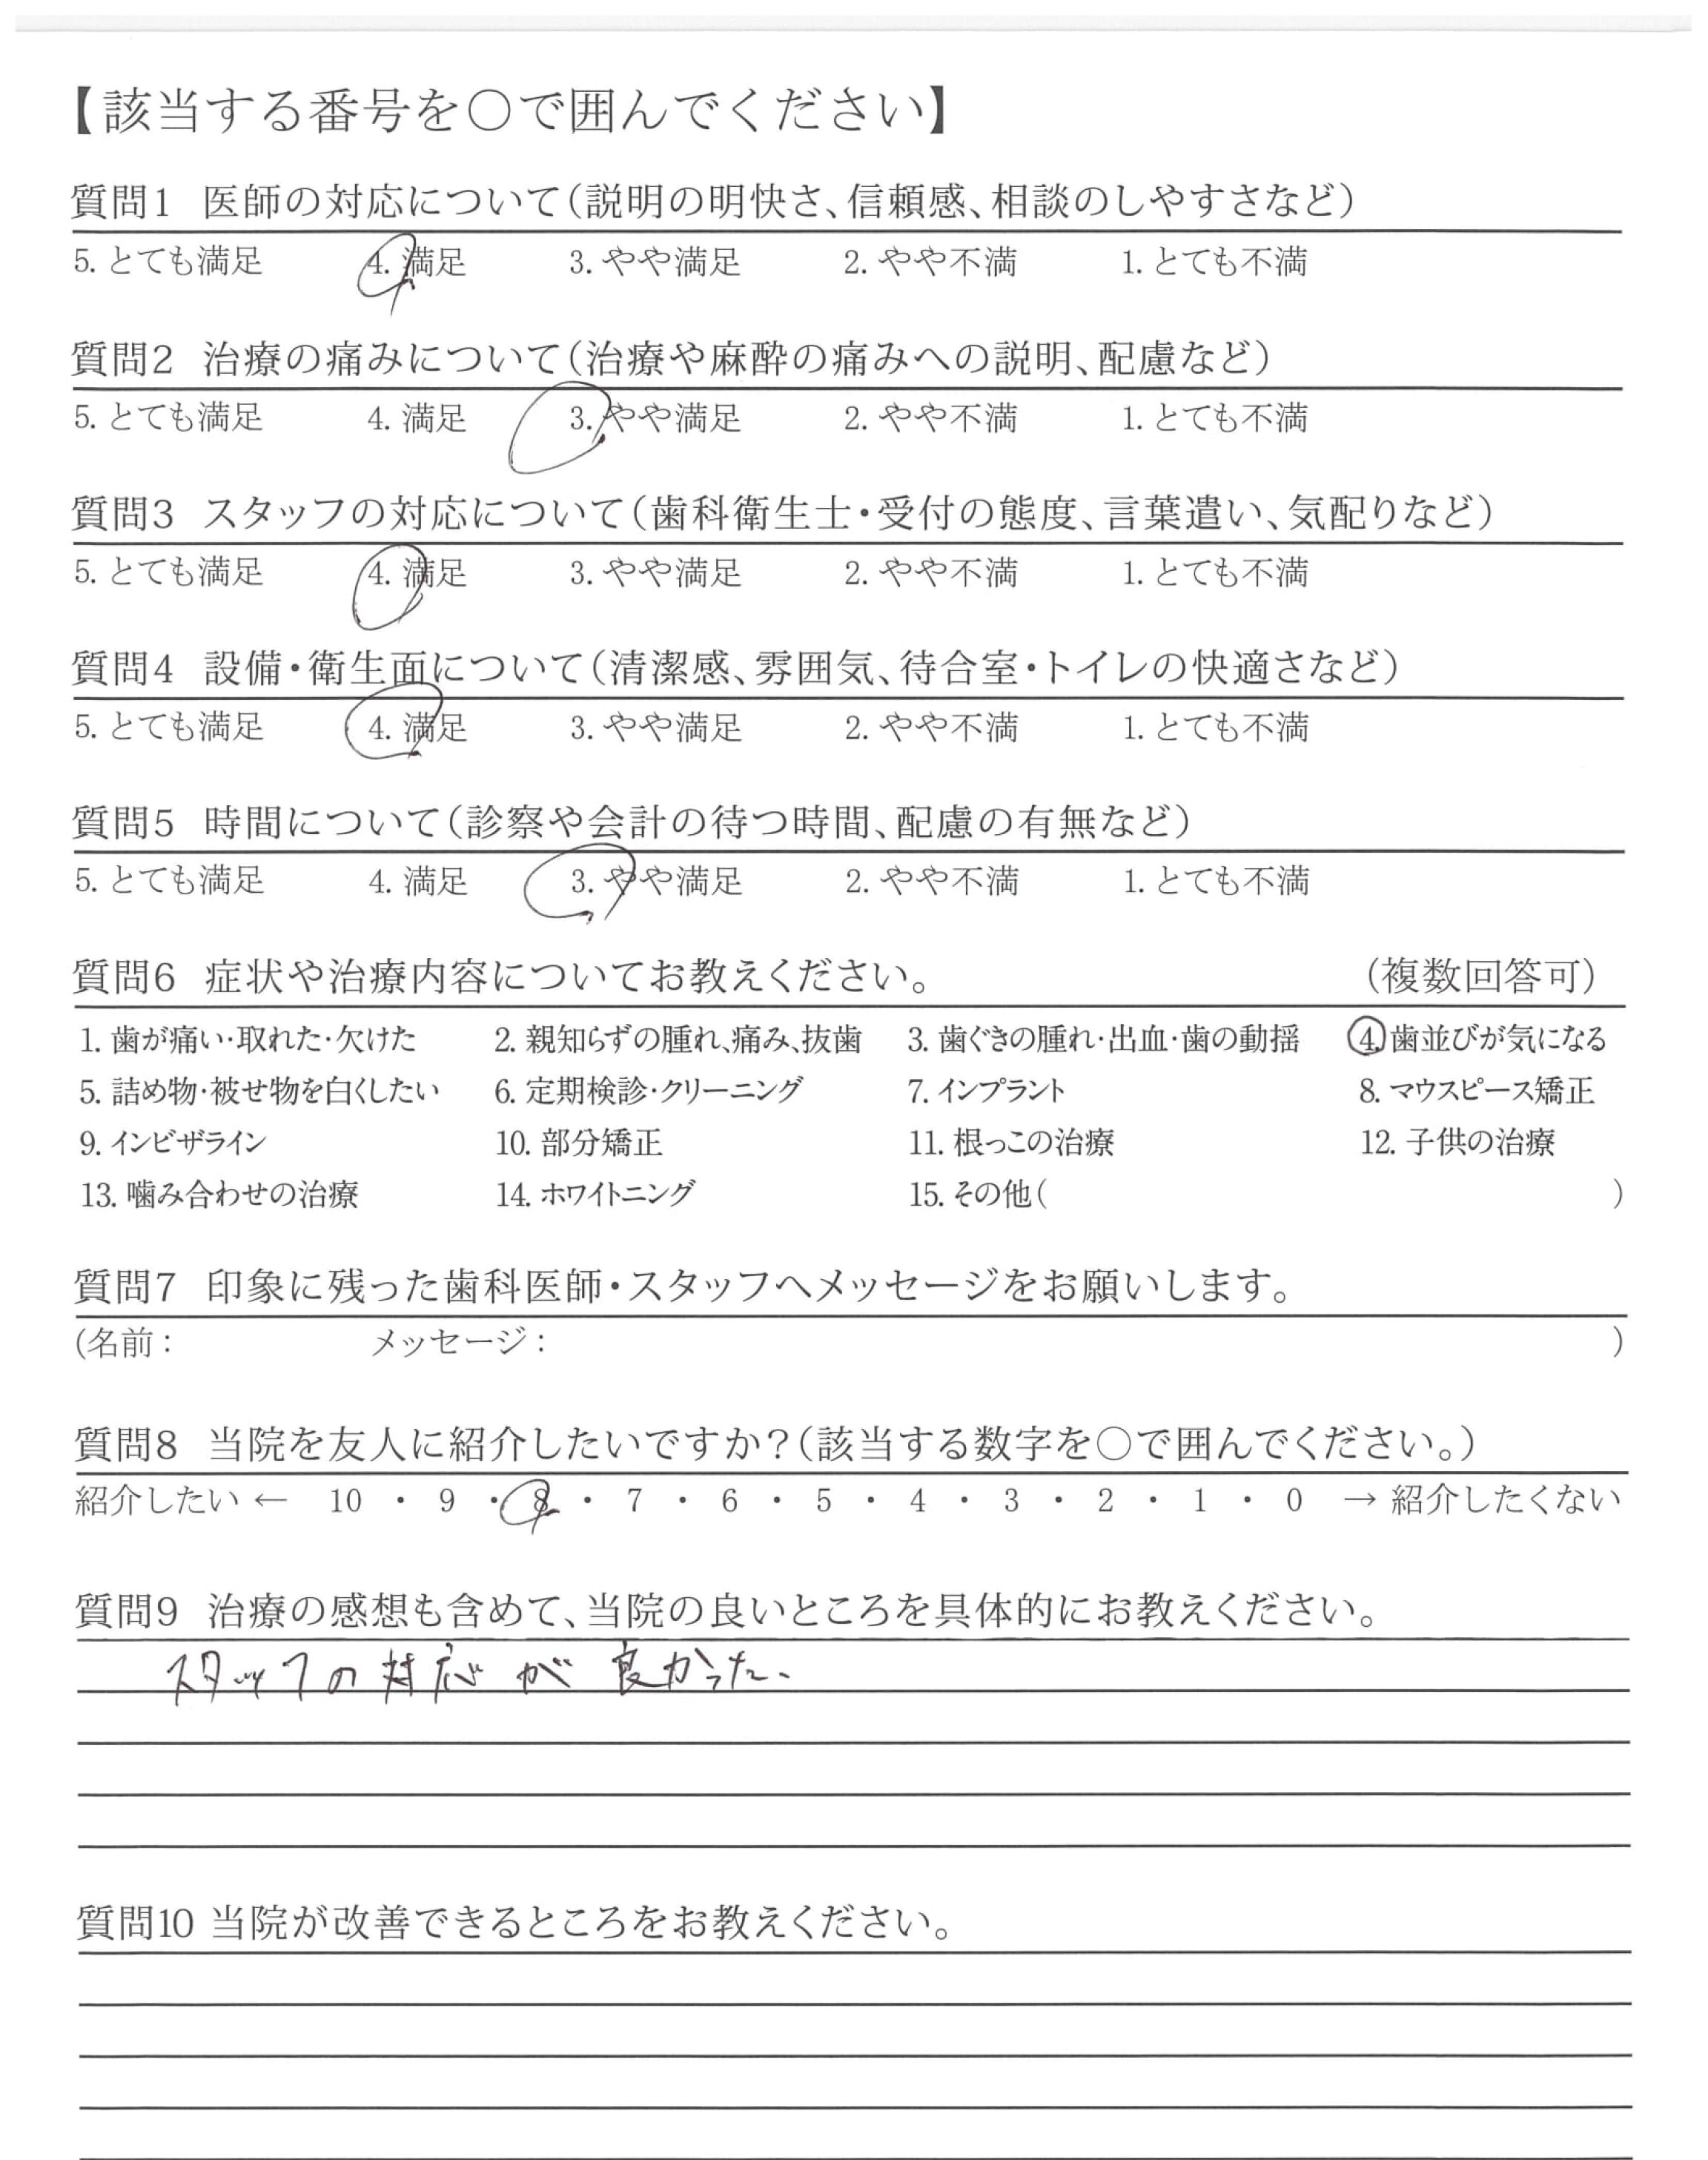 【該当する番号を○で囲んでください】
質問1 医師の対応について(説明の明快さ、信頼感、相談のしやすさなど)
5. とても満足 4. 満足 3. やや満足 2. やや不満 1. とても不満
質問2 治療の痛みについて(治療や麻酔の痛みへの説明、配慮など)
5. とても満足 4. 満足 3. やや満足 2. やや不満 1. とても不満
質問3 スタッフの対応について(歯科衛生士・受付の態度、言葉遣い、気配りなど)
5. とても満足 4. 満足 3. やや満足 2. やや不満 1. とても不満
質問4 設備・衛生面について(清潔感、雰囲気、待合室・トイレの快適さなど)
5. とても満足 4. 満足 3. やや満足 2. やや不満 1. とても不満
質問5 時間について(診察や会計の待つ時間、配慮の有無など)
5. とても満足 4. 満足 3. やや満足 2. やや不満 1. とても不満
質問6 症状や治療内容についてお教えください。 (複数回答可)
1. 歯が痛い・取れた・欠けた 2. 親知らずの腫れ、痛み、抜歯 3. 歯ぐきの腫れ・出血・歯の動揺 4. 歯並びが気になる
5. 詰め物・被せ物を白くしたい 6. 定期検診・クリーニング 7. インプラント 8. マウスピース矯正
9. インビザライン 10. 部分矯正 11. 根っこの治療 12. 子供の治療
13. 噛み合わせの治療 14. ホワイトニング 15. その他( )
質問7 印象に残った歯科医師・スタッフへメッセージをお願いします。
(名前: メッセージ: )
質問8 当院を友人に紹介したいですか?(該当する数字を○で囲んでください。)
紹介したい ← 10 ・ 9 ・ 8 ・ 7 ・ 6 ・ 5 ・ 4 ・ 3 ・ 2 ・ 1 ・ 0 → 紹介したくない
質問9 治療の感想も含めて、当院の良いところを具体的にお教えください。
スタッフの対応が良かった。
質問10 当院が改善できるところをお教えください。